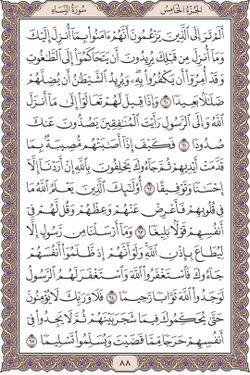 الجُزْءُ الخَامِسُ سُورَةُ النِّسَاءِ
أَلَمْ تَرَ إِلَى ٱلَّذِينَ يَزْعُمُونَ أَنَّهُمْ ءَامَنُوا۟ بِمَآ أُنزِلَ إِلَيْكَ
وَمَآ أُنزِلَ مِن قَبْلِكَ يُرِيدُونَ أَن يَتَحَاكَمُوٓا۟ إِلَى ٱلطَّـٰغُوتِ
وَقَدْ أُمِرُوٓا۟ أَن يَكْفُرُوا۟ بِهِۦ وَيُرِيدُ ٱلشَّيْطَـٰنُ أَن يُضِلَّهُمْ
ضَلَـٰلًۢا بَعِيدًا ٦٠ وَإِذَا قِيلَ لَهُمْ تَعَالَوْا۟ إِلَىٰ مَآ أَنزَلَ
ٱللَّهُ وَإِلَى ٱلرَّسُولِ رَأَيْتَ ٱلْمُنَـٰفِقِينَ يَصُدُّونَ عَنكَ
صُدُودًا ٦١ فَكَيْفَ إِذَآ أَصَـٰبَتْهُم مُّصِيبَةٌۢ بِمَا
قَدَّمَتْ أَيْدِيهِمْ ثُمَّ جَآءُوكَ يَحْلِفُونَ بِٱللَّهِ إِنْ أَرَدْنَآ إِلَّآ
إِحْسَـٰنًا وَتَوْفِيقًا ٦٢ أُو۟لَـٰٓئِكَ ٱلَّذِينَ يَعْلَمُ ٱللَّهُ مَا
فِى قُلُوبِهِمْ فَأَعْرِضْ عَنْهُمْ وَعِظْهُمْ وَقُل لَّهُمْ فِىٓ
أَنفُسِهِمْ قَوْلًۢا بَلِيغًا ٦٣ وَمَآ أَرْسَلْنَا مِن رَّسُولٍ إِلَّا
لِيُطَاعَ بِإِذْنِ ٱللَّهِ وَلَوْ أَنَّهُمْ إِذ ظَّلَمُوٓا۟ أَنفُسَهُمْ
جَآءُوكَ فَٱسْتَغْفَرُوا۟ ٱللَّهَ وَٱسْتَغْفَرَ لَهُمُ ٱلرَّسُولُ
لَوَجَدُوا۟ ٱللَّهَ تَوَّابًا رَّحِيمًا ٦٤ فَلَا وَرَبِّكَ لَا يُؤْمِنُونَ
حَتَّىٰ يُحَكِّمُوكَ فِيمَا شَجَرَ بَيْنَهُمْ ثُمَّ لَا يَجِدُوا۟ فِىٓ
أَنفُسِهِمْ حَرَجًا مِّمَّا قَضَيْتَ وَيُسَلِّمُوا۟ تَسْلِيمًا ٦٥
٨٨